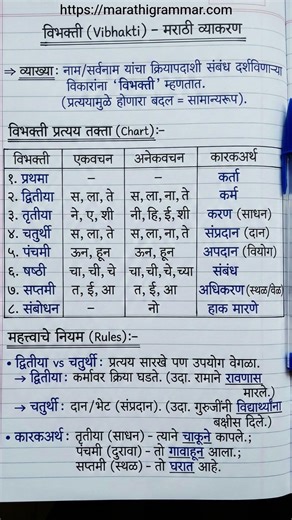 https://marathigrammar.com
विभक्ती (Vibhakti) – मराठी व्याकरण
⇒ व्याख्या: नाम/सर्वनाम यांचा क्रियापदाशी संबंध दर्शविणाऱ्या
विकारांना 'विभक्ती' म्हणतात.
(प्रत्ययामुळे होणारा बदल = सामान्यरूप).
विभक्ती प्रत्यय तक्ता (Chart):-
विभक्ती एकवचन अनेकवचन कारकअर्थ
१. प्रथमा – – कर्ता
२. द्वितीया स, ला, ते स, ला, ना, ते कर्म
३. तृतीया ने, ए, शी नी, हि, ई, शी करण (साधन)
४. चतुर्थी स, ला, ते स, ला, ना, ते संप्रदान (दान)
५. पंचमी ऊन, हून ऊन, हून अपदान (वियोग)
६. षष्ठी चा, ची, चे चा, ची, चे, च्या संबंध
७. सप्तमी त, ई, आ त, ई, आ अधिकरण (स्थळ/वेळ)
८. संबोधन – नो हाक मारणे
महत्त्वाचे नियम (Rules):-
• द्वितीया vs चतुर्थी: प्रत्यय सारखे पण उपयोग वेगळा.
→ द्वितीया: कर्मावर क्रिया घडते. (उदा. रामाने रावणास
मारले.)
→ चतुर्थी: दान/भेट (संप्रदान). (उदा. गुरुजींनी विद्यार्थ्यांना
बक्षीस दिले.)
• कारकअर्थ: तृतीया (साधन) – त्याने चाकूने कापले.;
पंचमी (दुरावा) – तो गावाहून आला.;
सप्तमी (स्थळ) – तो घरात आहे.